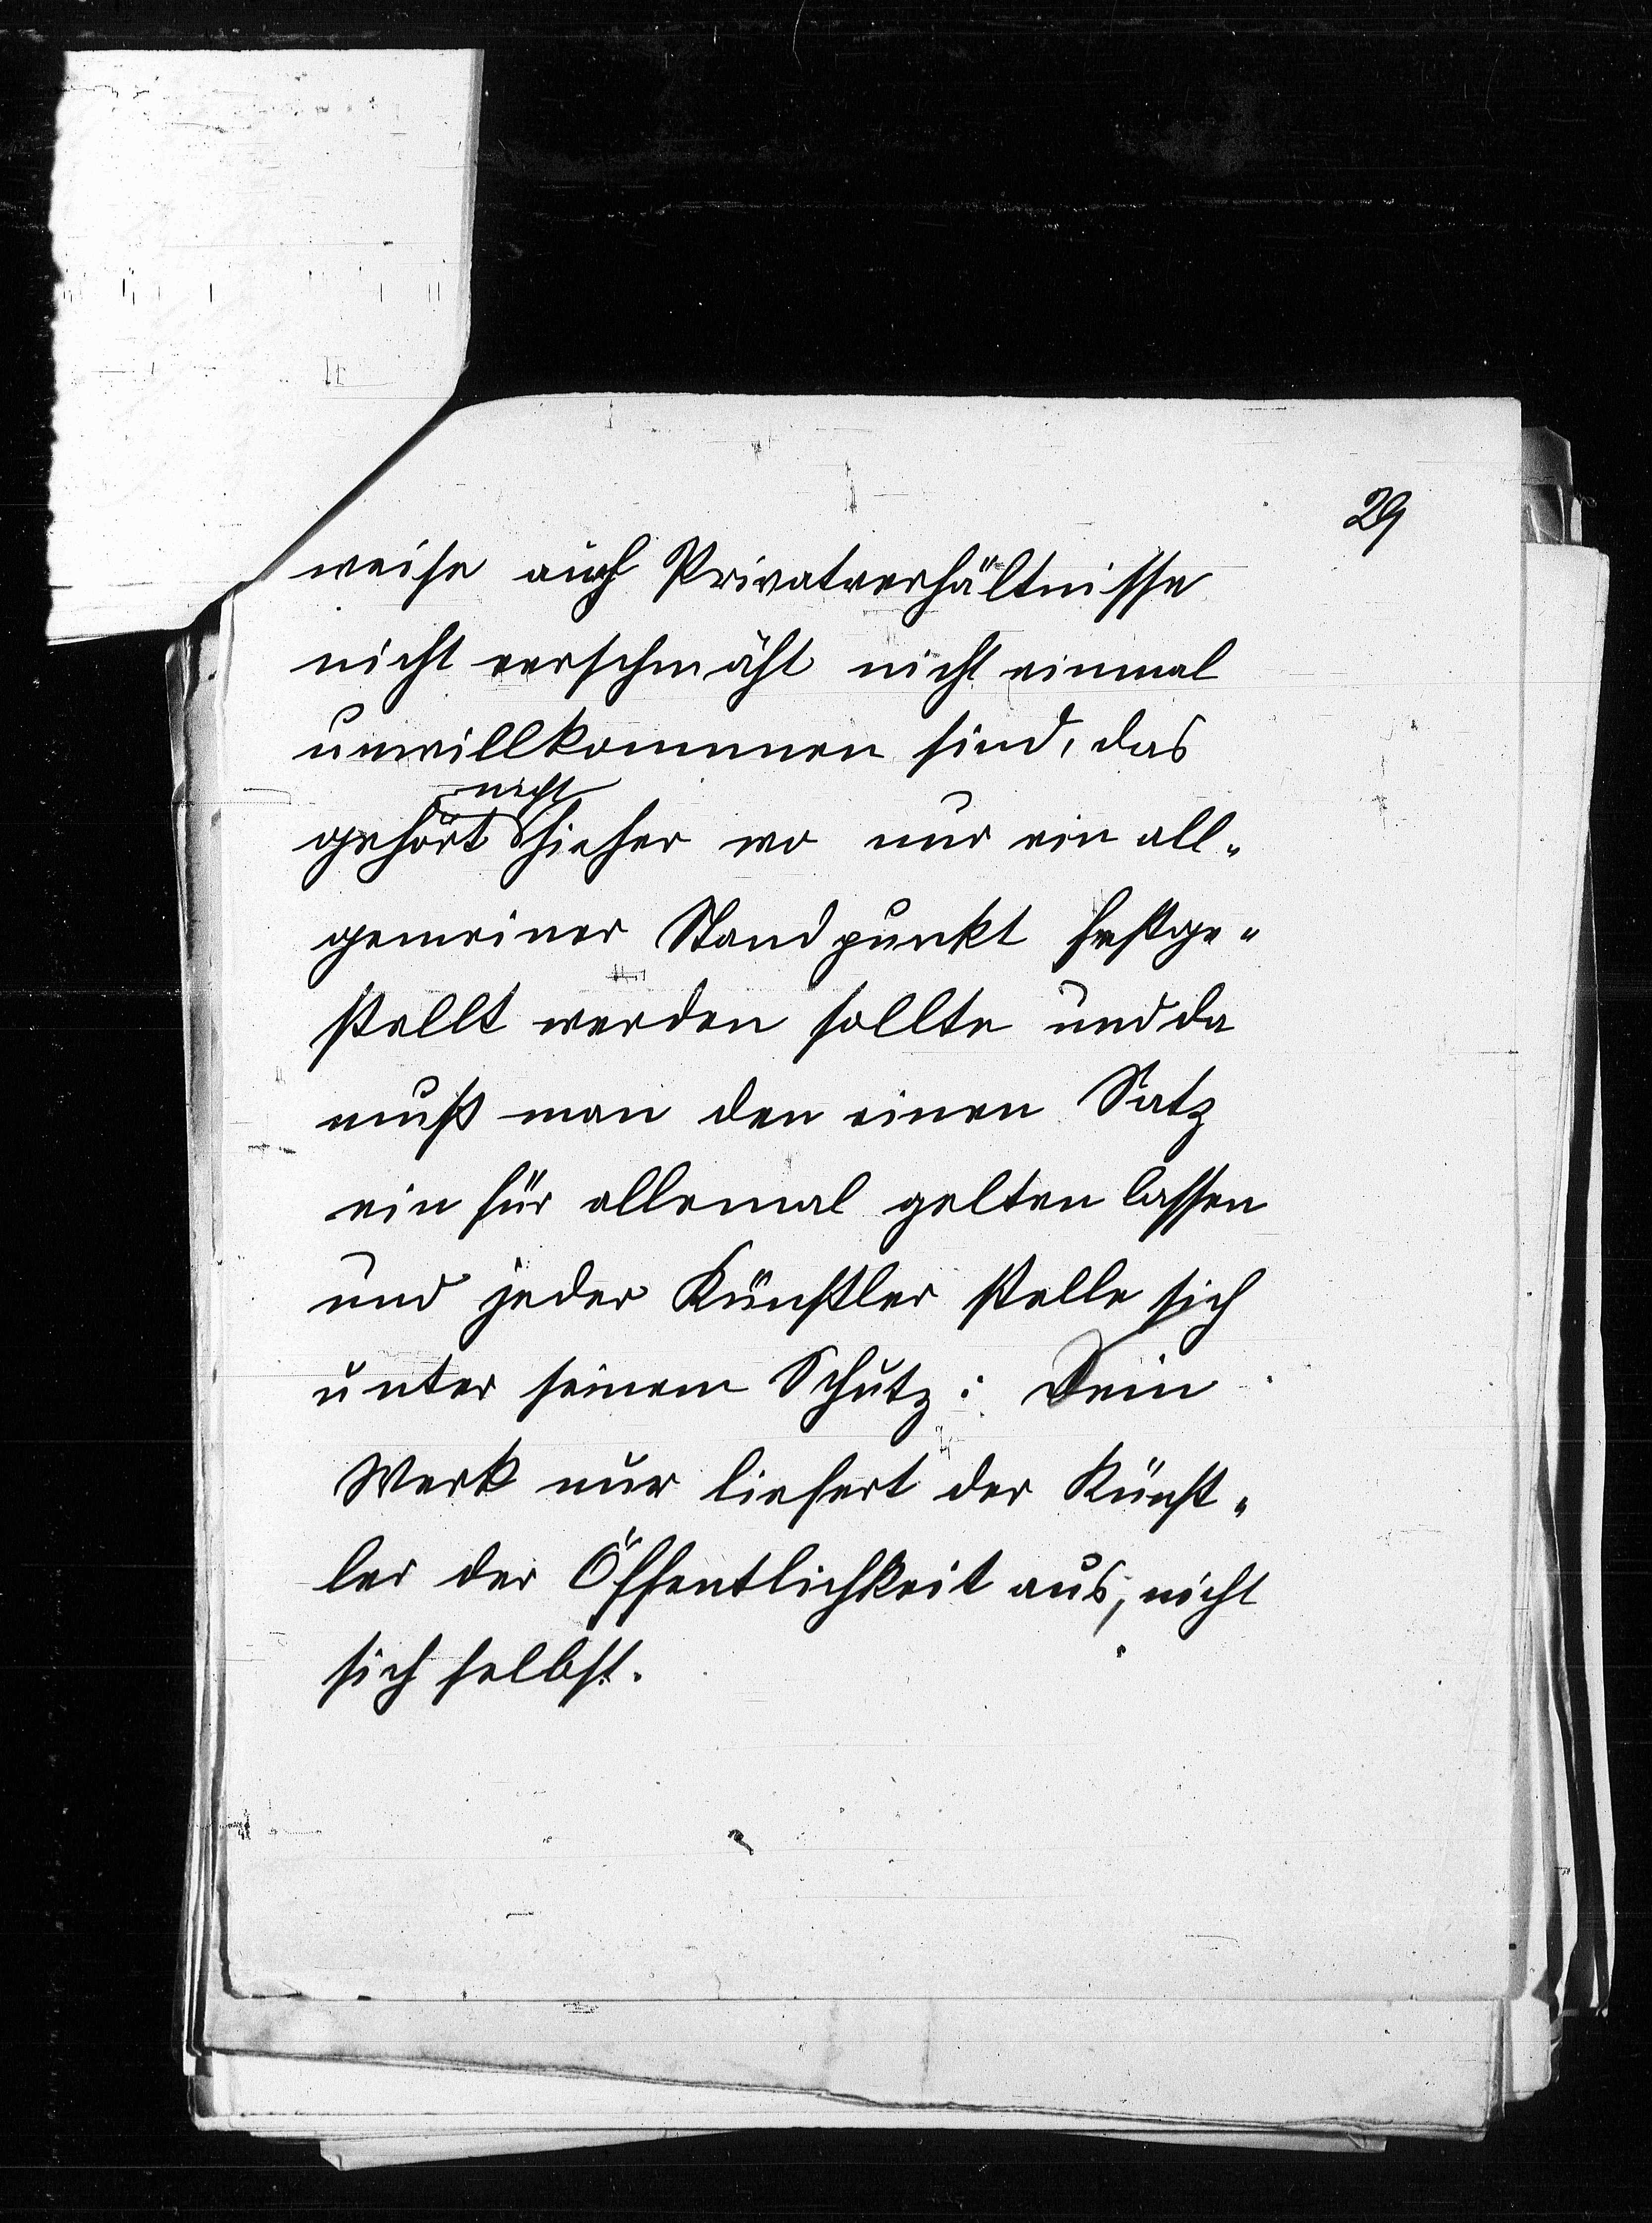 29
weise auch Privatverhältnisse
nicht verschmäht nicht einmal
unwillkommen sind, das
nicht
gehört hieher wo nur ein all-
gemeiner Standpunkt festge-
stellt werden sollte und da
muß man den einen Satz
ein für allemal gelten lassen
und jeder Künstler stelle sich
unter seinem Schutz: Dein
Werk nur liefert der Künst-
ler der Öffentlichkeit aus, nicht
sich selbst.